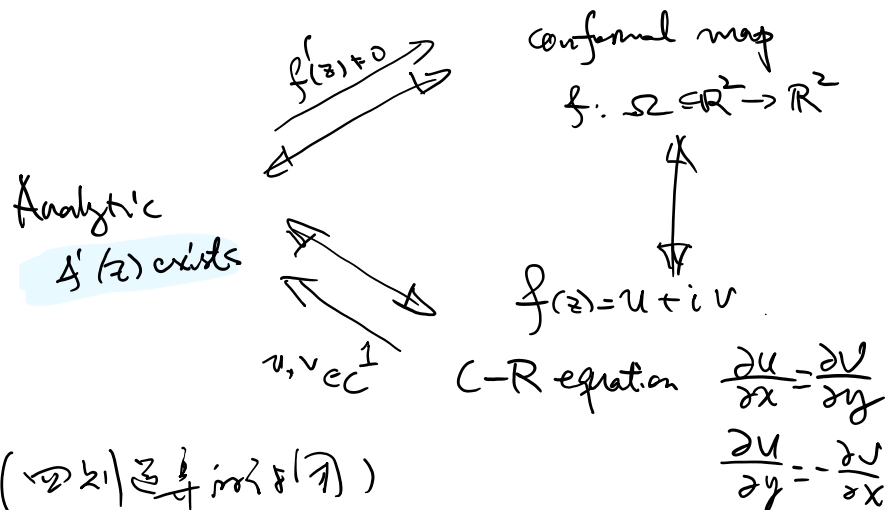 conformal map
f: Ω ⊆ ℝ² → ℝ²
f'(z) ≠ 0
Analytic
f'(z) exists
f(z) = u + i v
u, v ∈ C¹
C-R equation ∂u/∂x = ∂v/∂y
∂u/∂y = - ∂v/∂x